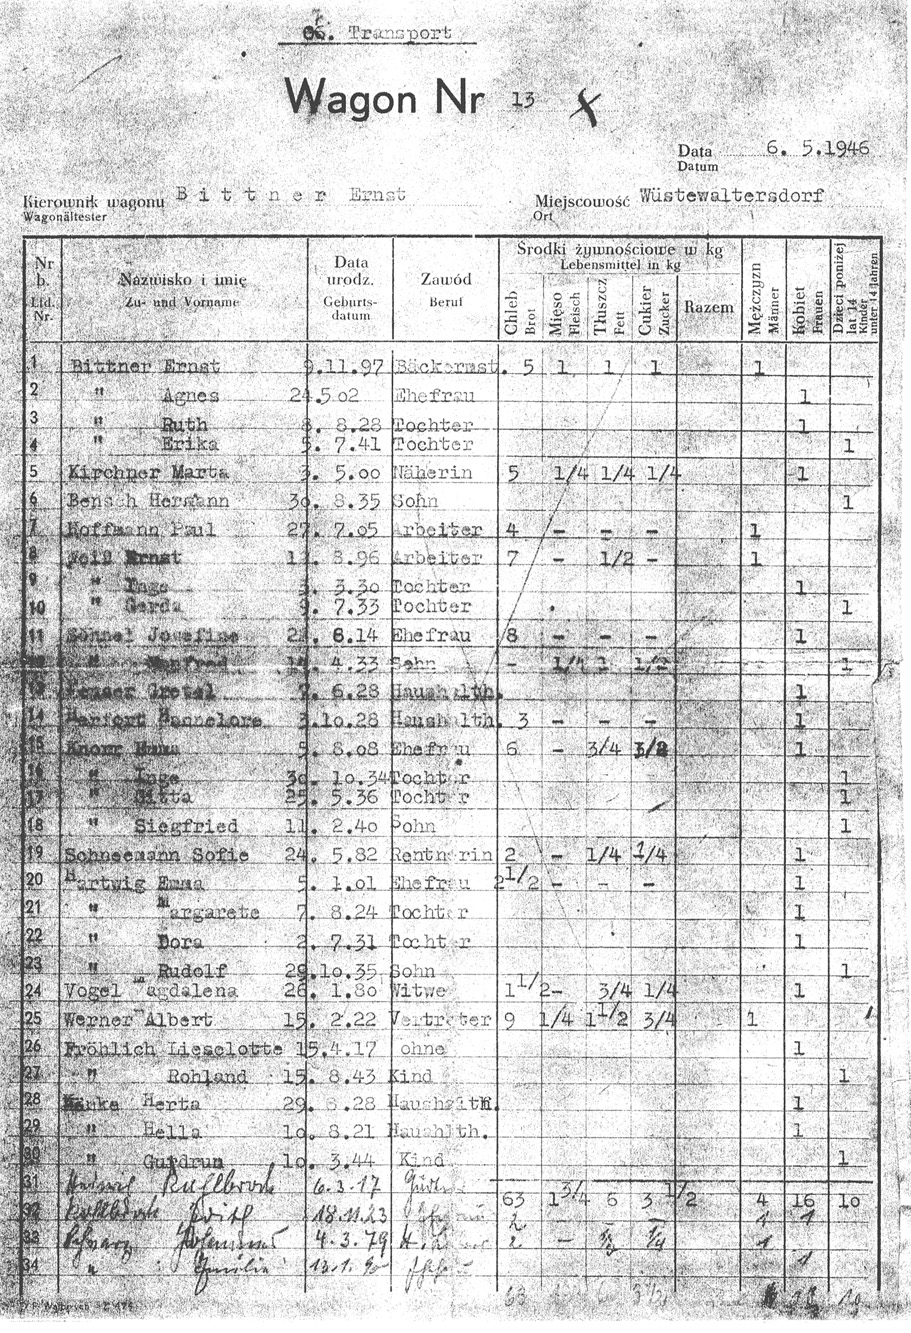 Transport
Wagon Nr 13 X
Data 6. 5.1946
Datum
Kierownik wagonu Bittner Ernst Miejscowość Wüstewaltersdorf
Wagonältester Ort
Nr b. Nazwisko i imię Data urodz. Zawód Środki żywnościowe w kg Mężczyzn Kobiet Dzieci poniżej lat 14
Lfd. Nr. Zu- und Vorname Geburtsdatum Beruf Lebensmittel in kg Männer Frauen Kinder unter 14 Jahren
Chleb Mięso Tłuszcz Cukier Razem
Brot Fleisch Fett Zucker
1 Bittner Ernst 9.11.97 Bäckermst. 5 1 1 1 1
2 " Agnes 24.5.02 Ehefrau 1
3 " Ruth 8. 8.28 Tochter 1
4 " Erika 5. 7.41 Tochter 1
5 Kirchner Marta 3. 5.00 Näherin 5 1/4 1/4 1/4 1
6 Bensch Hermann 30. 8.35 Sohn 1
7 Hoffmann Paul 27. 7.05 Arbeiter 4 - - - 1
8 Weiß Ernst 8.96 Arbeiter 7 - 1/2 - 1
9 " Inge 3. 3.30 Tochter 1
10 " Gerda 9. 7.33 Tochter 1
11 Söhnel Josefine 6.14 Ehefrau 8 - - - 1
" Manfred 4.33 Sohn - 1/4 1 1/2 1
13 Gretel 6.28 Haushalth. 1
14 Herfort Hannelore 3.10.28 Haushalth. 3 - - - 1
15 Knorr Emma 5. 8.08 Ehefrau 6 - 3/4 1
16 " Inge 30. 10.34 Tochter 1
17 " Gitta 25. 5.36 Tochter 1
18 " Siegfried 11. 2.40 Sohn 1
19 Schneemann Sofie 24. 5.82 Rentnerin 2 - 1/4 1/4 1
20 Hartwig Emma 5. 1.01 Ehefrau 2 1/2 - - - 1
21 " Margarete 7. 8.24 Tochter 1
22 " Dora 2. 7.31 Tochter 1
23 " Rudolf 29.10.35 Sohn 1
24 Vogel Magdalena 26. 1.80 Witwe 1 1/2 - 3/4 1/4 1
25 Werner Albert 15. 2.22 Vertreter 9 1/4 1 1/2 3/4 1
26 Fröhlich Lieselotte 15.4.17 ohne 1
27 " Rohland 15. 8.43 Kind 1
28 Herta 29. 8.28 Haushalth. 1
29 " Hella 10. 8.21 Haushlth. 1
30 " Gurdrun 10. 3.44 Kind 1
31 6.3.17
63 1 3/4 6 3 1/2 4 16 10
32 18.11.23 2 - - - 1
33 4.3.79 2 - 1/2 1/4 1
34 " 1
63